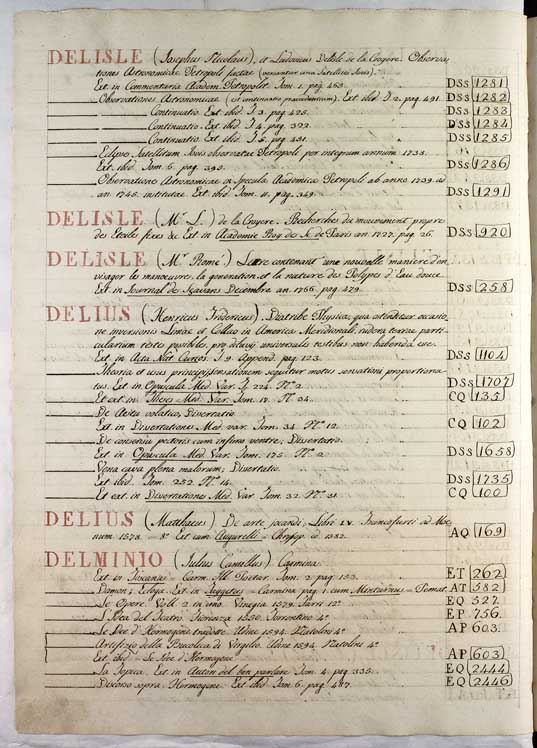 DELISLE (Josephus Nicolaus), et Ludovicus Delisle de la Croyere. Observa-
tiones Astronomicae Petropoli factae
Ext. in Commentaria Academ. Petropolit. Tom. 1. pag. 463. DSs 1281
Observationes Astronomicae Ext. ibid. T. 2. pag. 491. DSs 1282
Continuatio Ext. ibid. T. 3. pag. 425. DSs 1283
Continuatio Ext. ibid. T. 4. pag. 322. DSs 1284
Continuatio Ext. ibid. T. 5. pag. 431. DSs 1285
Eclipses Satellitum Jovis observatae Petropoli per integrum annum 1738.
Ext. ibid. Tom. 6. pag. 395. DSs 1286
Observationes Astronomicae in Specula Academica Petropoli ab anno 1739 ad
an. 1745. institutae. Ext. ibid. Tom. 11. pag. 349. DSs 1291
DELISLE (Mr. L.) de la Croyere. Recherches du mouvement propre
des Etoiles fixes &c. Ext. in Academie Roy. des Sc. de Paris an. 1727. pag. 26. DSs 920
DELISLE (Mr. Romé) Lettre contenant une nouvelle maniere d'en-
visager les manoeuvre, la generation, et la nature des Polypes d'Eau douce
Ext. in Journal de Scavans Decembre an. 1766. pag. 479. DSs 258
DELIUS (Henricus Fridericus). Diatribe Physica, qua ostenditur occasio-
ne inversionis Limae et Collao in America Meridionali, rudera terrae parti-
cularium testes possibiles, pro diluvii universalis testibus non habenda esse.
Ext. in Acta Nat. Curios. T. 9. Append. pag. 123. DSs 1104
Theoria et usus principii sensationem sequitur motus sensationi proportiona-
tus. Ext. in Opuscula Med. Var. T. 224. N.º 2. DSs 1707
Et ext. in Theses Med. Var. Tom. 12. N.º 24. CQ 135
De Aestu volatico, Dissertatio
Ext. in Dissertationes Med. var. Tom. 34. N.º 12. CQ 102
De consensu pectoris cum infimo ventre, Dissertatio.
Ext. in Opuscula Med. Var. Tom. 175. N.º 2. DSs 1658
Vena cava plena malorum, Dissertatio
Ext. ibid. Tom. 252. N.º 14. DSs 1735
Et ext. in Dissertationes Med. Var. Tom. 32. N.º 31. CQ 100
DELIUS (Matthaeus) De arte jocandi, Libri IV. Francofurti ad Moe-
num 1578. 8º Et cum Augurelli 1582. AQ 169
DELMINIO (Julius Camillus) Carmina
Ext. in Toscanus Carm. Ill. Poetar. Tom. 2. pag. 153. ET 262
Damon; Ecloga. Ext. in Naugerius Carmina pag. 1. cum Minturnus Poemat. AT 582
Le Opere Voll. 2. in uno. Venegia 1579. Farri 12º EQ 527.
L'Idea del Teatro Fiorenza 1550. Torrentino 4º EP 756.
Le Idee d'Hermogene tradotte Udine 1594. Natolini 4º AP 603.
Artificio della Bucolica di Virgilio. Udine 1594. Natolini 4º
Ext. ibid. Le Idee d'Hermogene AP 603
La Topica. Ext. in Autori del ben parlare Tom. 4. pag. 335. EQ 2444
Discorso sopra Hermogene. Ext. ibid. Tom. 6. pag. 487. EQ 2446